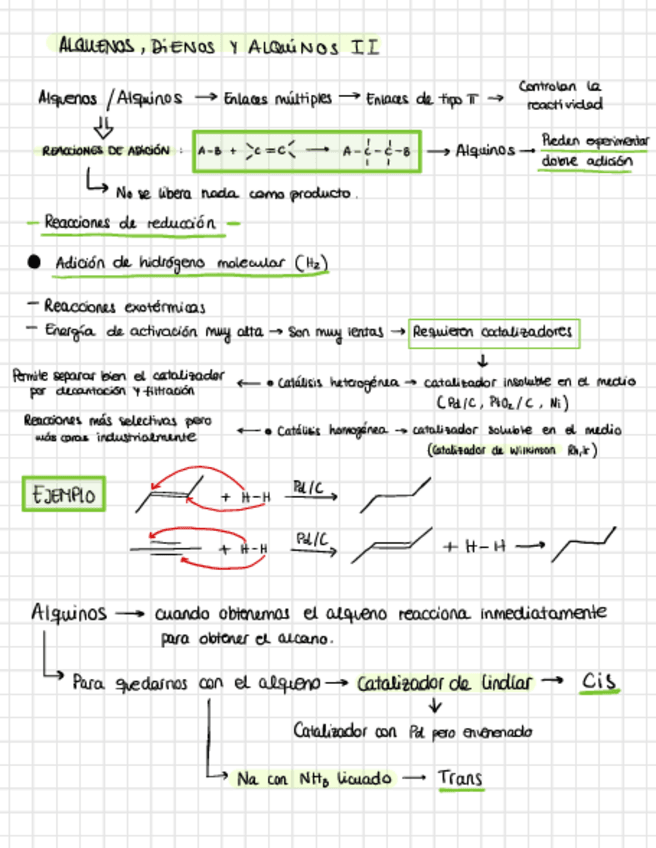 ALQUENOS, DIENOS Y ALQUINOS II
Alquenos / Alquinos → Enlaces múltiples → Enlaces de tipo π → Controlan la reactividad
REACCIONES DE ADICIÓN : A-B + >C=C< → A-C-C-B → Alquinos → Pueden experimentar doble adición
No se libera nada como producto.
- Reacciones de reducción -
● Adición de hidrógeno molecular (H₂)
- Reacciones exotérmicas
- Energía de activación muy alta → Son muy lentas → Requieren catalizadores
Permite separar bien el catalizador por decantación y filtración ← • Catálisis heterogénea → catalizador insoluble en el medio
(Pd/C, PtO₂/C, Ni)
Reacciones más selectivas pero más caras industrialmente ← • Catálisis homogénea → catalizador soluble en el medio
(Catalizador de Wilkinson Rh, Ir)
EJEMPLO
+ H-H Pd/C →
+ H-H Pd/C → + H-H →
Alquinos → cuando obtenemos el alqueno reacciona inmediatamente
para obtener el alcano.
Para quedarnos con el alqueno → Catalizador de Lindlar → Cis
Catalizador con Pd pero envenenado
Na con NH₃ licuado → Trans